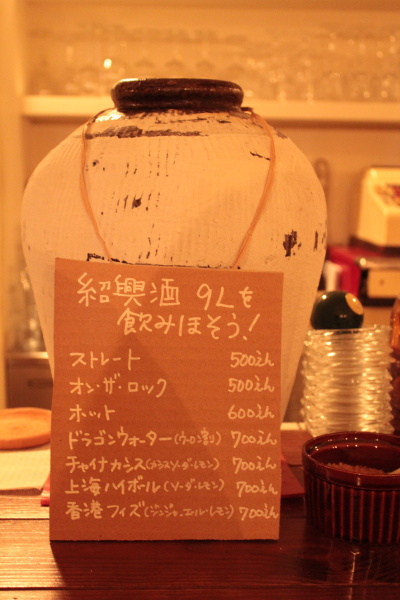 紹興酒 9Lを
飲みほそう!
ストレート 500えん
オン・ザ・ロック 500えん
ホット 600えん
ドラゴンウォーター(ウーロン割り) 700えん
チャイナカシス(カシスソーダ・レモン) 700えん
上海ハイボール(ソーダ・レモン) 700えん
香港フィズ(ジンジャーエール・レモン) 700えん